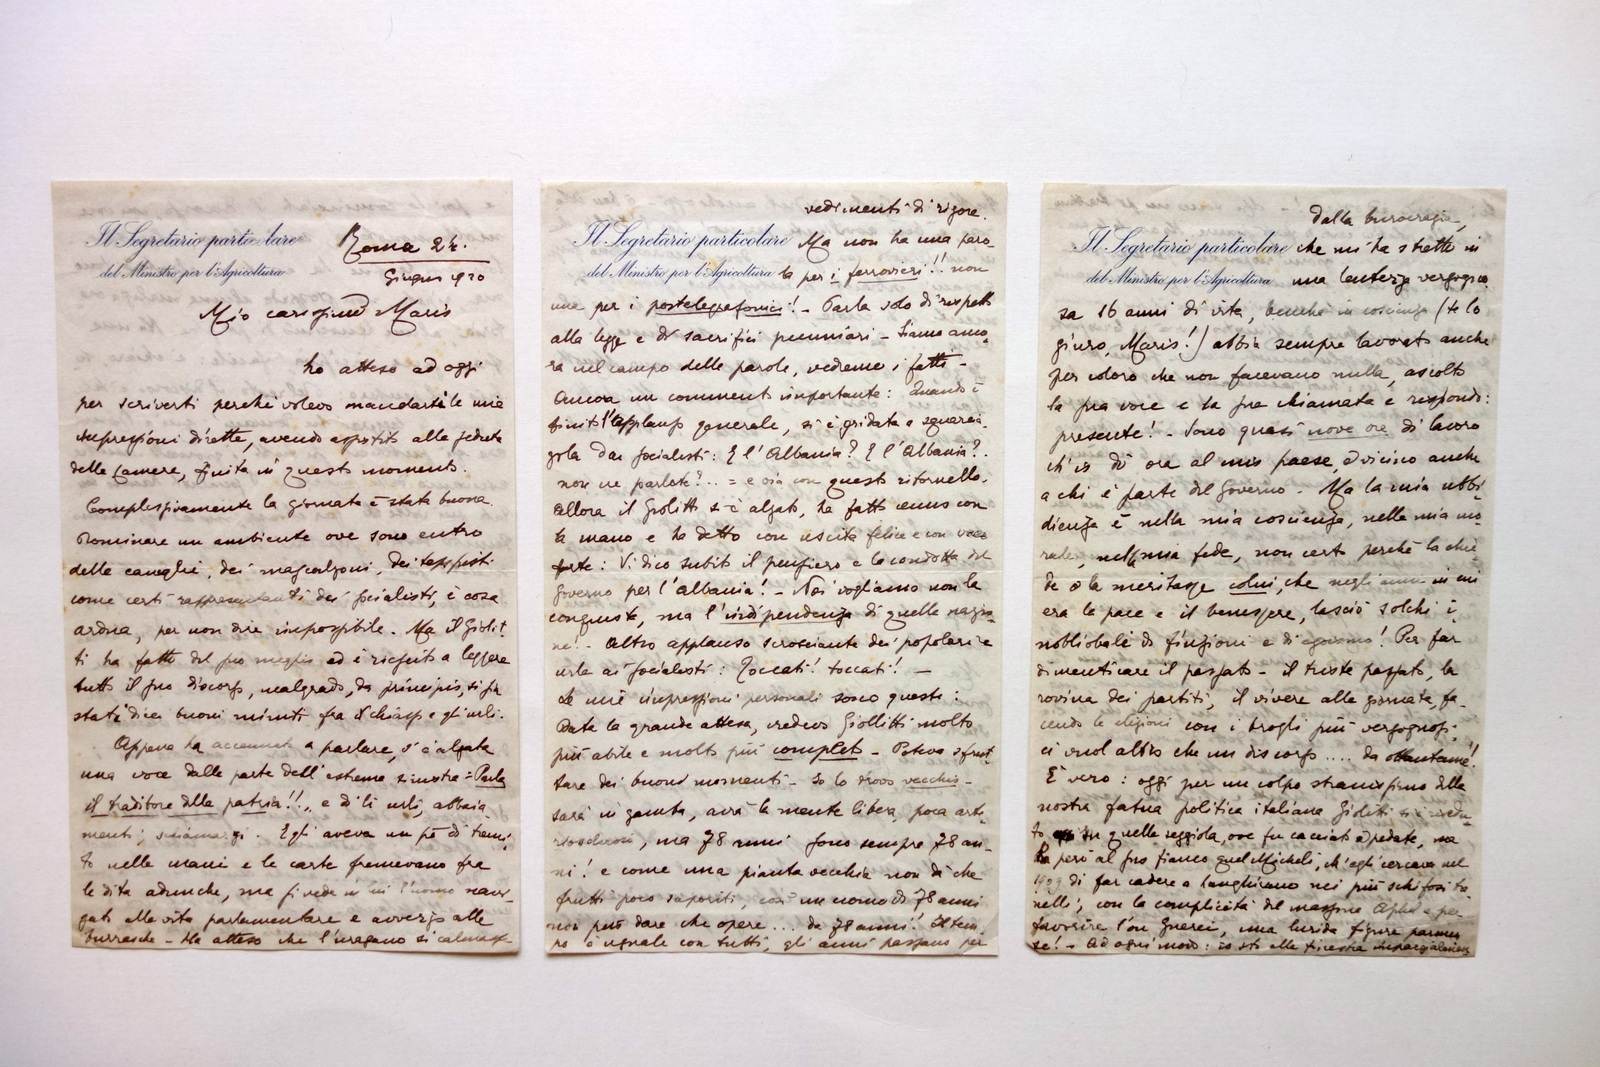 Il Segretario particolare
del Ministro per l'Agricoltura
Roma 24.
Giugno 920
Mio carissimo Maris
ho atteso ad oggi
per scriverti perché volevo mandarti le mie
impressioni dirette, avendo assistito alla seduta
della Camera, finita in questo momento.
Complessivamente la giornata è stata buona.
Dominare un ambiente ove sono entro
delle canaglie, dei mascalzoni, dei teppisti
come certi rappresentanti dei socialisti, è cosa
ardua, per non dire impossibile. Ma il Giolit-
ti ha fatto del suo meglio ed è riuscito a leggere
tutto il suo discorso, malgrado, da principio, si sia
stati dieci buoni minuti fra il chiasso e gli urli.
Appena ha accennato a parlare, s'è alzata
una voce dalla parte dell'estrema sinistra = Parla
il traditore della patria!!, e di lì urli, abbaia-
menti, schiamazzi. Egli aveva un pò di tremi-
to nelle mani e le carte fremevano fra
le dita adunche, ma si vede in lui l'uomo navi-
gato alla vita parlamentare e avvezzo alle
burrasche - Ha atteso che l'uragano si calmasse
vedimenti di rigore.
Il Segretario particolare
del Ministro per l'Agricoltura
Ma non ha una paro-
la per i ferrovieri!! non
una per i postelegrafonici! - Parla solo di rispetto
alla legge e di sacrifici pecuniari - Siamo anco-
ra nel campo delle parole, vedremo i fatti -
Ancora un commento importante: Quando è
finito l'applauso generale, si è gridato a squarcia-
gola dai socialisti: E l'Albania? E l'Albania?
non ne parlate?.. = e via con questo ritornello.
Allora il Giolitti s'è alzato, ha fatto cenno con
la mano e ha detto con uscita felice e con voce
forte: Vi dico subito il pensiero e la condotta del
Governo per l'Albania! - Noi vogliamo non la
conquista, ma l'indipendenza di quella nazio-
ne! - Altro applauso scrosciante dei popolari e
urla ai socialisti: Toccati! toccati! -
Le mie impressioni personali sono queste:
Data la grande attesa, credevo Giolitti molto
più abile e molto più completo - Poteva sfrut-
tare dei buoni momenti - Io lo trovo vecchio -
sarà in gamba, avrà la mente libera, poca arte-
riosclerosi, ma 78 anni sono sempre 78 an-
ni! e come una pianta vecchia non dà che
frutti poco saporiti, così un uomo di 78 anni
non può dare che opere... da 78 anni! Il tem-
po è uguale con tutti, gli anni passano per
Il Segretario particolare
del Ministro per l'Agricoltura
dalla burocrazia,
che mi ha stretto in
una lentezza vergogno-
sa 16 anni di vita, benché in coscienza (te lo
giuro, Maris!) abbia sempre lavorato anche
per coloro che non facevano nulla, ascolto
la sua voce e la sua chiamata e rispondo:
presente! - Sono quasi nove ore di lavoro
ch'io dò ora al mio paese, e vicino anche
a chi è parte del Governo - Ma la mia ubbi-
dienza è nella mia coscienza, nella mia mo-
rale, nella mia fede, non certo perché la chie-
de o la meritasse colui, che negli anni in cui
era la pace e il benessere, lasciò solchi i-
di finzioni e di egoismo! Per far
dimenticare il passato - il triste passato, la
rovina dei partiti, il vivere alla giornata, fa-
cendo le elezioni con i brogli più vergognosi,
ci vuol altro che un discorso .... da ottantenne!
È vero: oggi per un colpo stranissimo della
nostra fatua politica italiana Giolitti si è sedu-
to su quella seggiola, ove fu cacciato a pedate, ma
ha però al suo fianco quel Micheli, ch'egli cercava nel
1909 di far cadere a Langhirano nei più schifosi tra-
nelli, con la complicità del per
favorire l'on Guerci, una lurida figura parmen-
se! - Ad ogni modo: io sto alla finestra